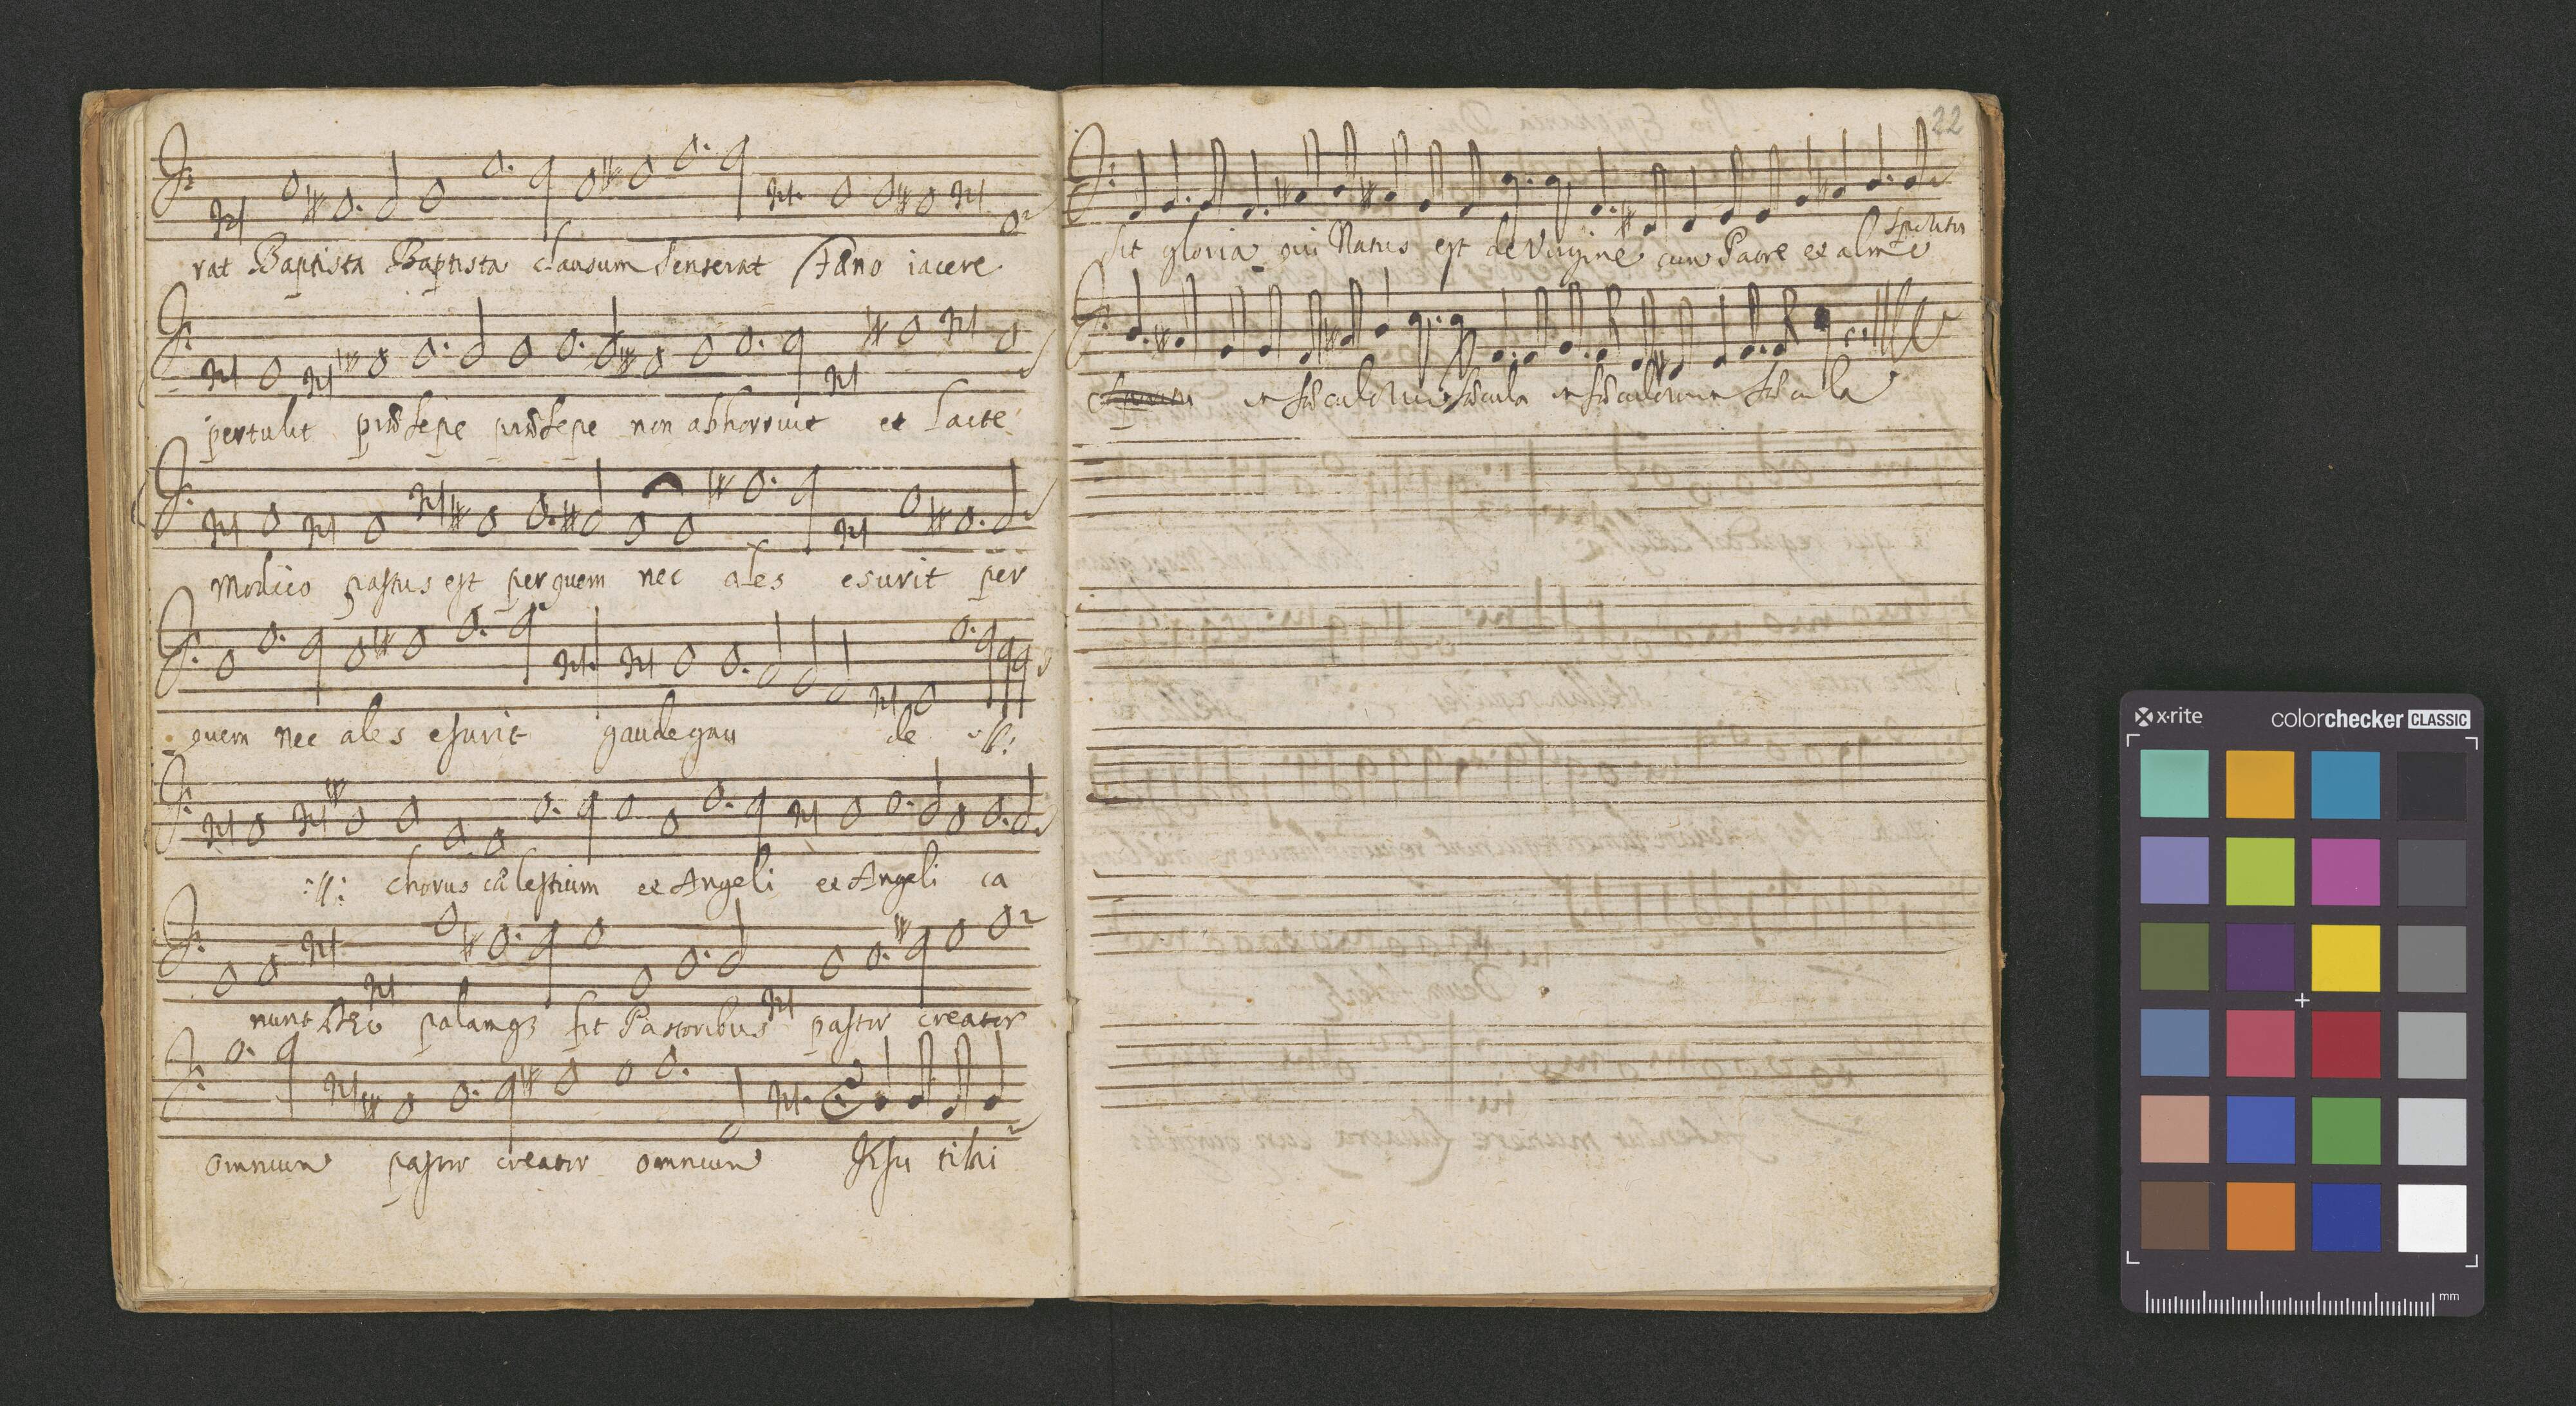 rat Baptista Baptista clausum senserat Fæno iacere
pertulit præsepe præsepe non abhorruit et lacte
modico pastus est per quem nec ales esurit per
quem nec ales esurit gaude gau de :||:
:||: chorus cælestium et Angeli et Angeli ca
nunt Deo palamqꝫ fit Pastoribus pastor creator
omnium pastor creator omnium Jesu tibi
22
sit gloria qui Natus est de Virgine cum Patre et almo spiritu
in sæculorum sæcula in sæculorum sæcula
x·rite colorchecker CLASSIC
mm